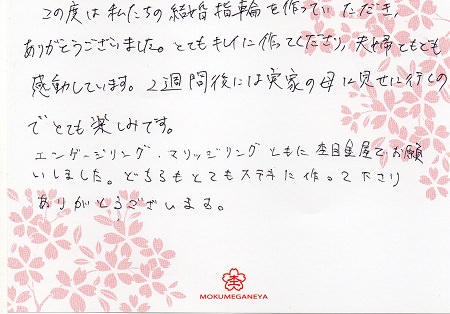 この度は私たちの結婚指輪を作っていただき、
ありがとうございました。とてもキレイに作ってくださり、夫婦ともども
感動しています。2週間後には実家の母に見せに行くの
でとても楽しみです。
エンゲージリング・マリッジリングともに杢目金屋でお願
いしました。どちらもとてもステキに作って下さり
ありがとうございます。
杢
MOKUMEGANEYA